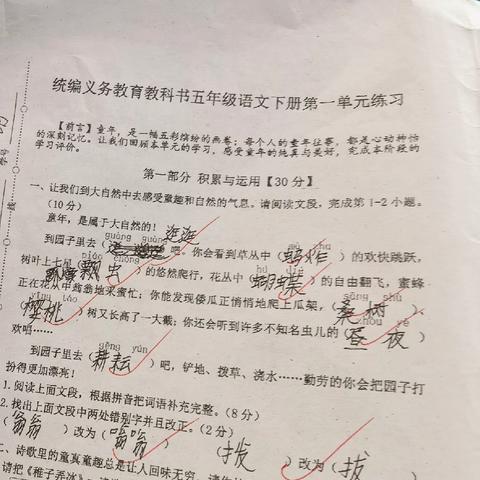 统编义务教育教科书五年级语文下册第一单元练习
【前言】童年，是一幅五彩缤纷的画卷；每个人的童年往事，都是心动神怡
的深刻记忆。让我们回顾本单元的学习，感受童年的纯真与美好，完成本阶段的
学习评价。
第一部分 积累与运用【30分】
一、让我们到大自然中去感受童趣和自然的气息。请阅读文段，完成第1-2小题。
（10分）
童年，是属于大自然的！
guàng guang
逛逛
zhà
到园子里去（ ）吧。你会看到草丛中（蚂蚱）的欢快跳跃，
piáo chóng
hú dié
树叶上七星（瓢虫）的悠然爬行，花丛中（蝴蝶）的自由翻飞，蜜蜂
正在花丛中翁翁地采蜜忙；你能发现倭瓜正悄悄地爬上瓜架，（桑树）、
yīng táo
sāng shù
（樱桃）树又长高了一大截；你还会听到许多不知名虫儿的（昼夜）
zhòu yè
欢唱……
gēng yún
到园子里去（耕耘）吧，铲地、拨草、浇水……勤劳的你会把园子打
扮得更加漂亮！
1.阅读上面文段，根据拼音把词语补充完整。（8分）
2.找出上面文段中两处错别字并且改正。（2分）
（翁翁）改为（嗡嗡） （拨）改为（拔）
二、诗歌里的童真童趣总是让人回味无穷，请你
请把《稚子弄冰》